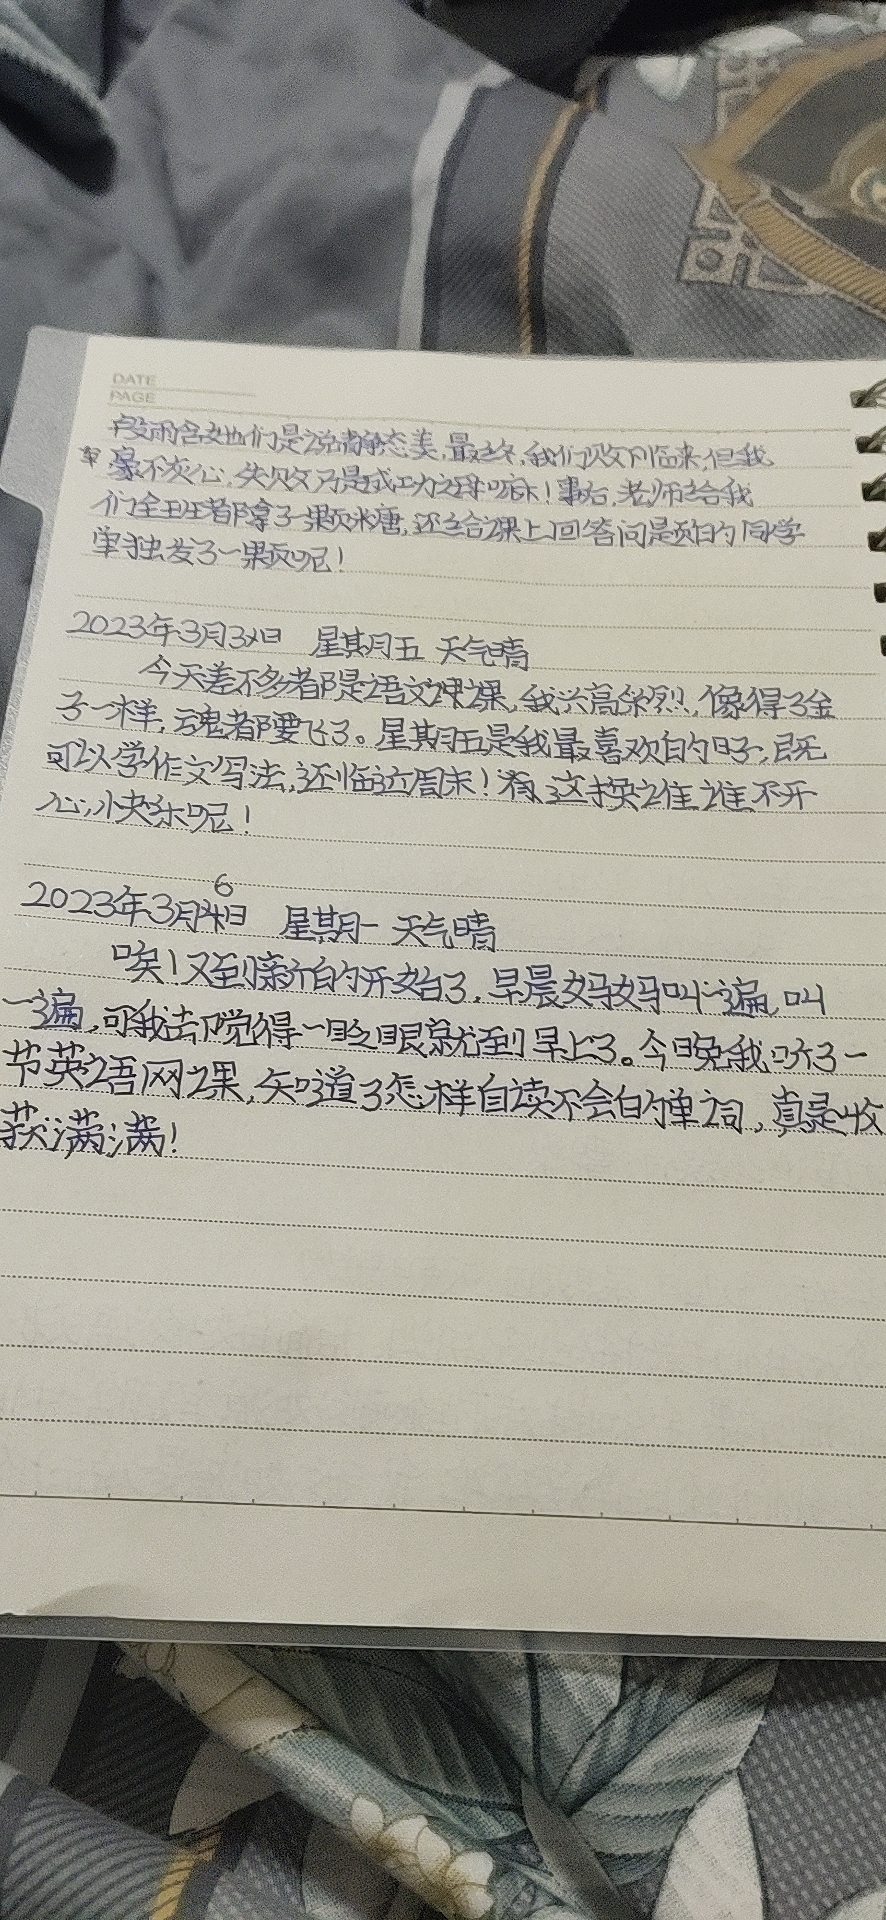 DATE
PAGE
段雨含她们是说静态美,最终,我们败下临来,但我
毫不灰心,失败乃是成功之母嘛!事后,老师给我
们全班都拿了一颗米唐,还给课上回答问题的同学
单独发了一颗呢!
2023年3月3日 星期五 天气晴
今天差不多都是语文课,我兴高采烈,像得了金
子一样,魂都要飞了。星期五是我最喜欢的日子,既
可以学作文写法,还临近周末!有,这换谁谁不开
心,小快乐呢!
2023年3月6日 星期一 天气晴
唉!又到新的开始了,早晨妈妈叫一遍,叫
一遍,可我去觉得一眨眼就到早上了。今晚我听了一
节英语网课,知道了怎样自读不会的单词,真是收
获满满!